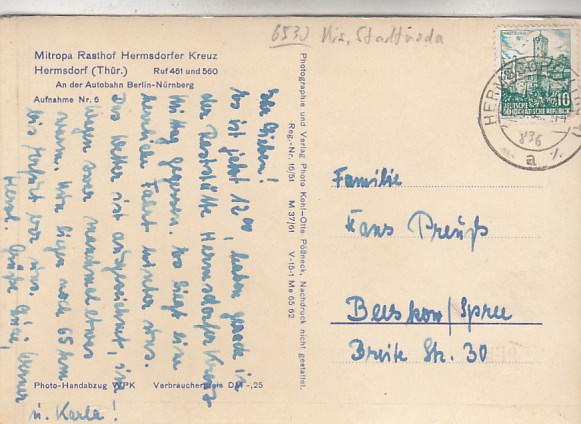 6530 Krs. Stadtroda
Mitropa Rasthof Hermsdorfer Kreuz
Hermsdorf (Thür.) Ruf 461 und 560
An der Autobahn Berlin-Nürnberg
Aufnahme Nr. 6
DEUTSCHE
DEMOKRATISCHE REPUBLIK
10
HERMSDORF
a
Ihr Lieben!
Es ist jetzt 12 00, haben gerade in
der Raststätte Hermsdorfer Kreuz
Mittag gegessen. Es liegt eine
herrliche Fahrt hinter uns.
Das Wetter ist ausgezeichnet, sie
liegen zwar manchmal etwas
Wir liegen noch 65 km
bis vor uns.
Herzl. Grüße Eure
Werner
u. Karla!
Photographie und Verlag Photo Kohl-Otte Pößneck, Nachdruck nicht gestattet.
Reg.-Nr. 16/51 M 37/61 V-15-1 Me 65 62
Familie
Hans Preuß
Beeskow/Spree
Breite Str. 30
Photo-Handabzug WPK Verbraucherpreis DM -,25